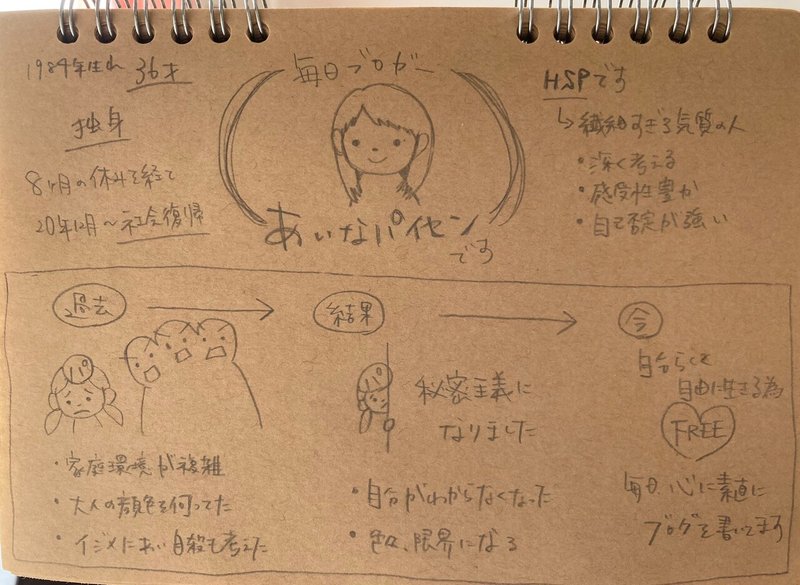 1984年生れ 36才
独身
8ヶ月の休みを経て
20年12月～社会復帰
毎日ブロガー
あいなパイセン
です
HSPです
↳繊細すぎる気質の人
・深く考える
・感受性豊か
・自己否定が強い
過去
結果
今
・家庭環境が複雑
・大人の顔色を伺ってた
・イジメにあい自殺も考えた
秘密主義に
なりました
・自分がわからなくなった
・色々、限界になる
自分らしく
自由に生きる為
FREE
毎日、心に素直に
ブログを書いてます